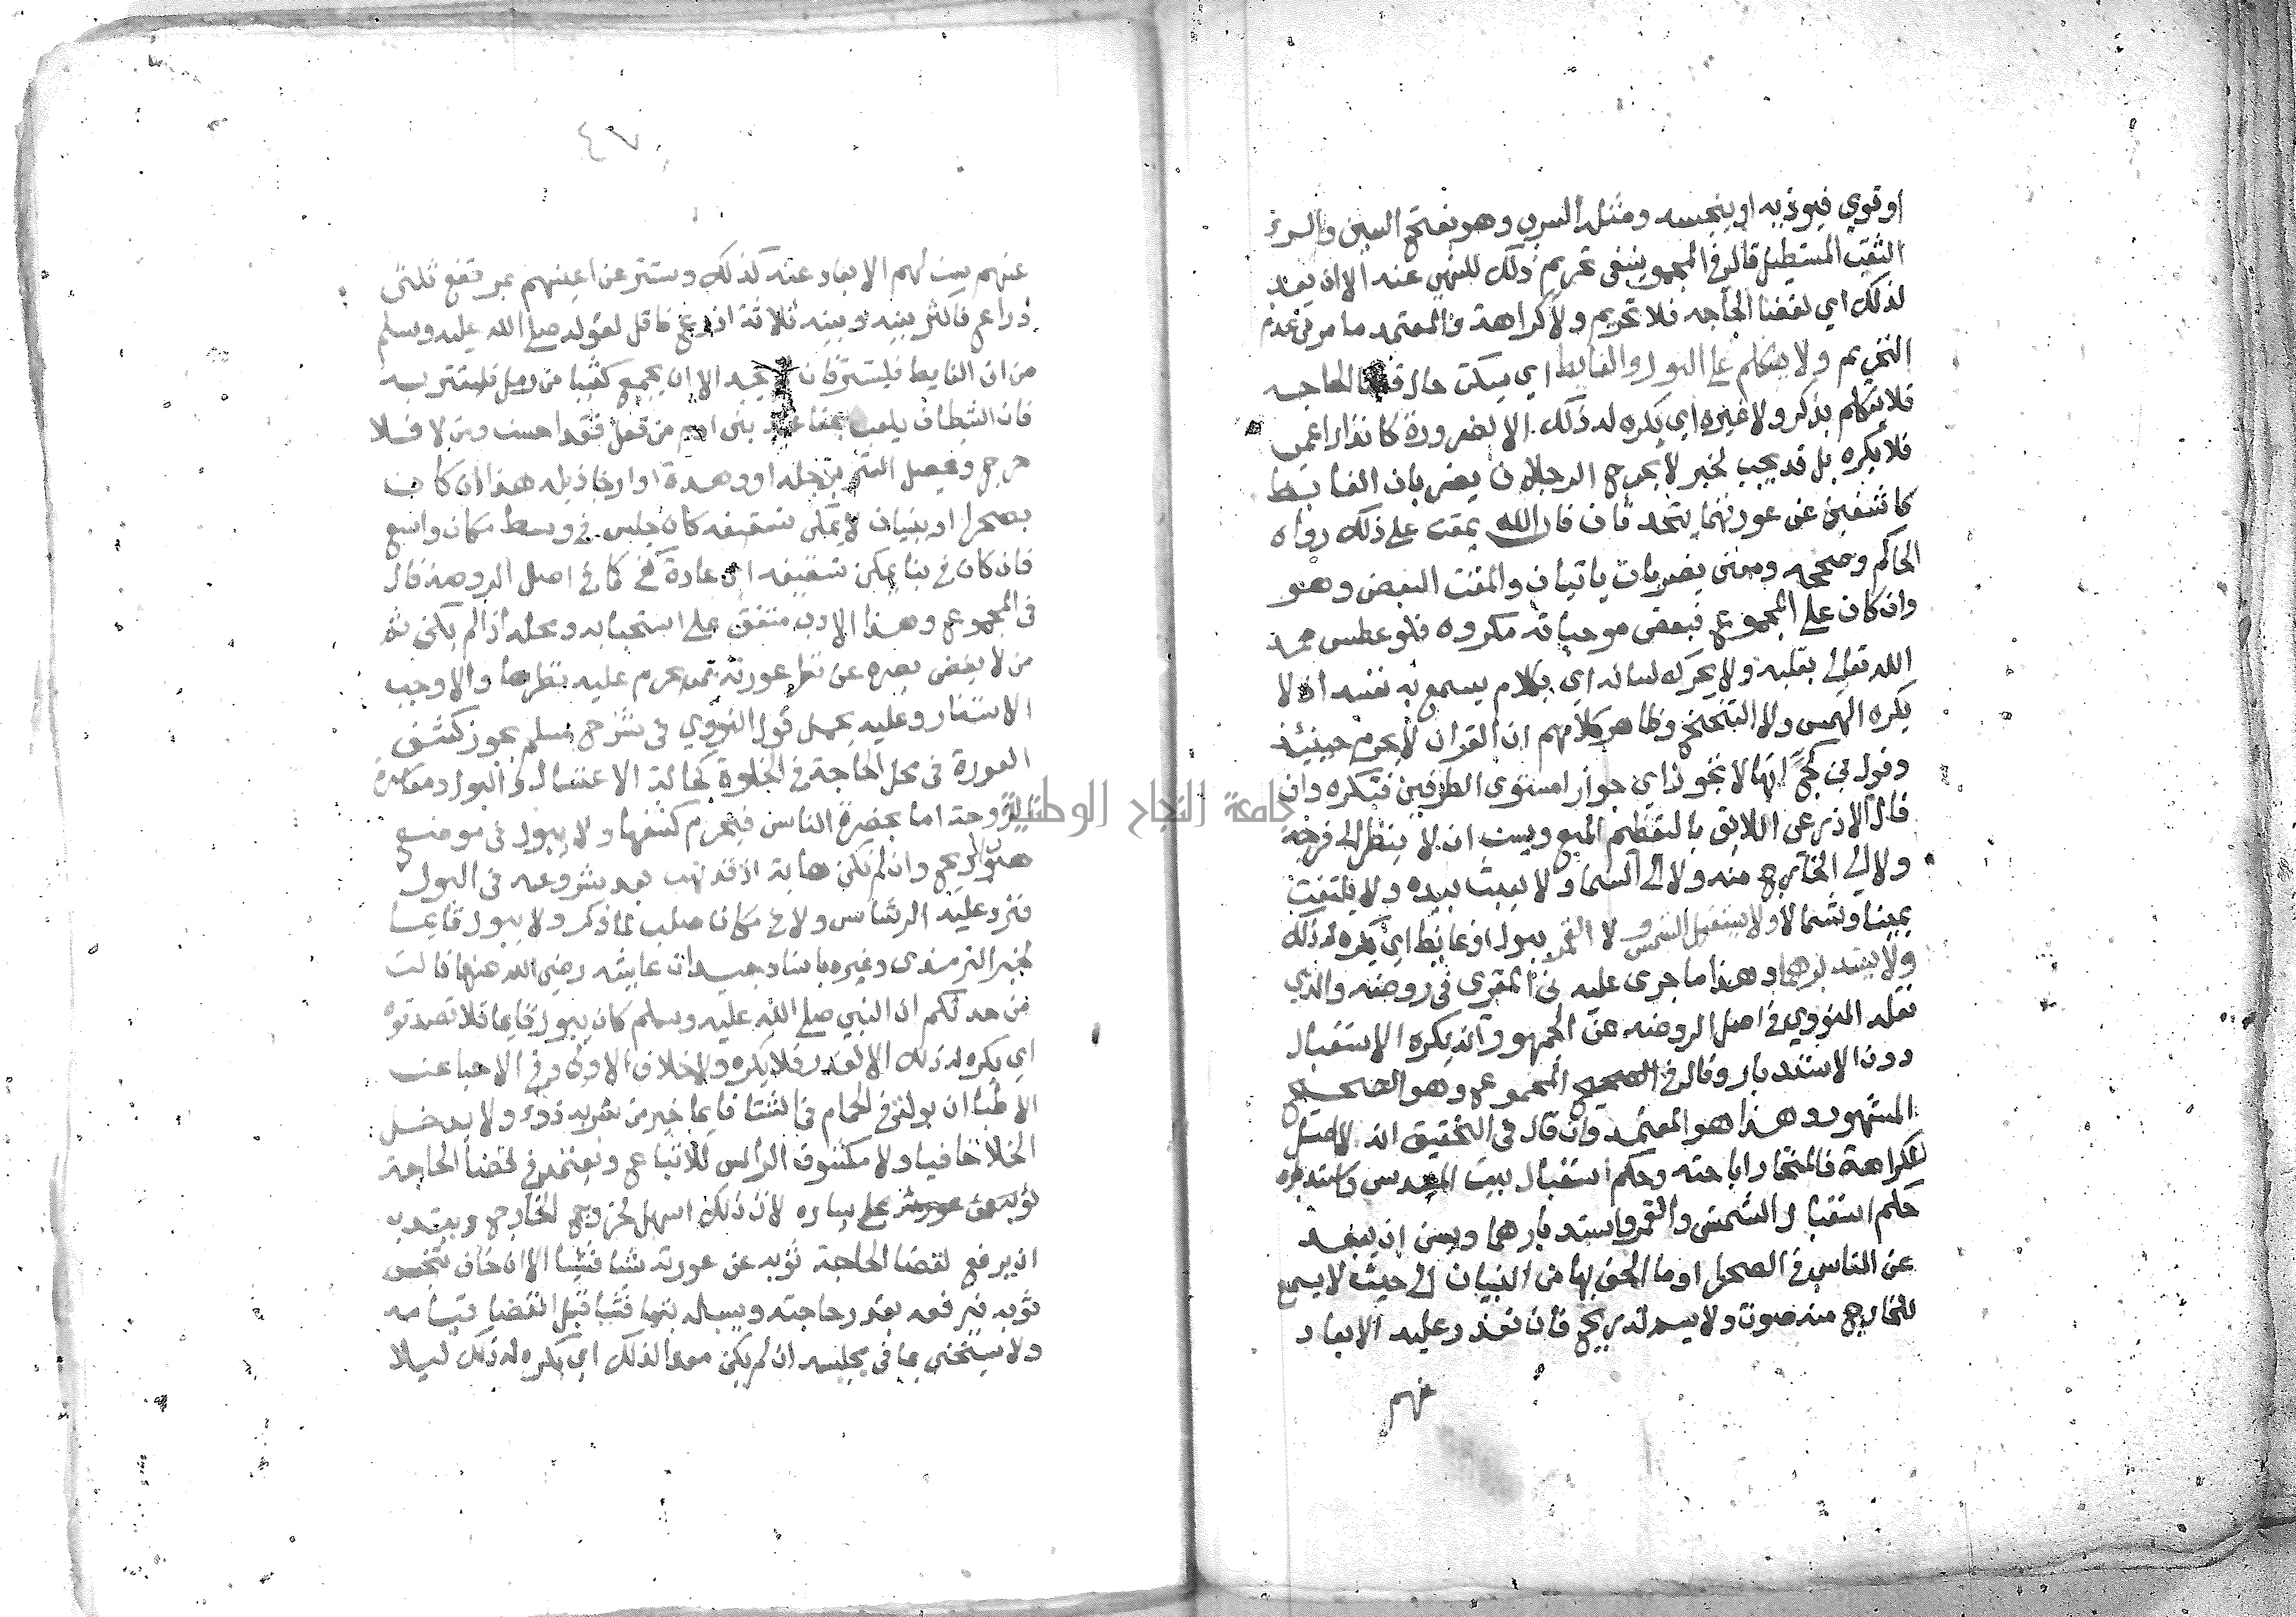 او قوي فيوذيه او ينجسه ومثله السرب وهو بفتح السين والراء
الثقب المستطيل قال في المجموع ينبغي تحريم ذلك للنهي عنه الا ان يعد
لذلك اي لقضا الحاجه فلا تحريم ولا كراهة والمعتمد ما مر من عدم
التحريم ولا يتكلم على البول والغايط اي يسكت حال قضا الحاجه
فلا يتكلم بذكر ولا غيره اي يكره له ذلك الا لضرورة كانذار اعمى
فلا يكره بل قد يجب لخبر لا يخرج الرجلان يضربان الغايط
كاشفين عن عورتهما يتحدثان فان الله يمقت على ذلك رواه
الحاكم وصححه ومعنى يضربان ياتيان والمقت البغض وهو
وان كان على المجموع فبعض موجباته مكروه فلو عطس حمد
الله تعالى بقلبه ولا يحرك لسانه اي بكلام يسمع به نفسه اذ لا
يكره الهمس ولا التنحنح وظاهر كلامهم ان القران لا يحرم حينيذ
وقول بن كج انها لا تجوز اي جواز مستوى الطرفين فتكره وان
قال الاذرعي اللايق بالتعظيم المنع ويسن ان لا ينظر الى فرجه
ولا الى الخارج منه ولا الى السما ولا يعبث بيده ولا يلتفت
يمينا وشمالا ولا يستقبل الشمس ولا القمر ببول او غايط اي يكره له ذلك
ولا يستدبرهما وهذا ما جرى عليه بن المقري في روضه والذي
نقله النووي في اصل الروضه عن الجمهور انه يكره الاستقبال
دون الاستدبار وقال في المجموع وهو الصحيح
المشهور وهذا هو المعتمد وان قال في التحقيق انه لا اصل
للكراهة فالمختار اباحته وحكم استقبال بيت المقدس واستدباره
حكم استقبال الشمس والقمر واستدبارهما ويسن ان يبعد
عن الناس في الصحرا وما الحق بها من البنيان الى حيث لا يسمع
للخارج منه صوت ولا يسم له ريح فان تعذر عليه الابعاد
عنهم
٤٧
عنهم يسن لهم الابعاد عنه كذلك ويستتر عن اعينهم بمرتفع ثلثى
ذراع فاكثر بينه وبينه ثلاثة اذرع فاقل لقوله صلى الله عليه وسلم
من اتى الغايط فليستتر فان لم يجد الا ان يجمع كثيبا من رمل فليستتر به
فان الشيطان يلعب بمقاعد بني ادم من فعل فقد احسن ومن لا فلا
حرج ويحصل الستر براحله او وهدة او ارخا ذيله هذا ان كان
بصحرا او بنيان لا يمكن تسقيفه كان جلس في وسط مكان واسع
فان كان في بنا يمكن تسقيفه اي عادة كفى كما في اصل الروضة قال
في المجموع وهذا الادب متفق على استحبابه ومحله اذا لم يكن ثم
من لا يغض بصره عن نظر عورته ممن يحرم عليه نظرها والا وجب
الاستتار وعليه يحمل قول النووي في شرح مسلم يجوز كشف
العورة في محل الحاجة في الخلوة كحالة الاغتسال والبول ومعاشرة
الزوجة اما بحضرة الناس فيحرم كشفها ولا يبول في موضع
هبوب الريح وان لم تكن هابة اذ قد تهب بعد شروعه في البول
فترد عليه الرشاش ولا في مكان صلب لما ذكر ولا يبول قايما
لخبر الترمذي وغيره باسناد جيد ان عايشه رضي الله عنها قالت
من حدثكم ان النبي صلى الله عليه وسلم كان يبول قايما فلا تصدقوه
اي يكره له ذلك الا لعذر فلا يكره ولا خلاف الاولى وفي الاحيا عن
الاطبا ان بولة في الحمام في الشتا قايما خير من شربه دوا ولا يدخل
الخلا حافيا ولا مكشوف الراس للاتباع ويعتمد في قضا الحاجة
على يساره لان ذلك اسهل لخروج الخارج ويندب
ان يرفع لقضا الحاجة ثوبه عن عورته شيا فشيا الا ان خاف تنجس
ثوبه فيرفعه بقدر حاجته ويسبله شيا فشيا قبل انقضا قيامه
ولا يستنجى بما في مجلسه ان لم يكن معدا لذلك اي يكره له ذلك ليلا
جامعة النجاح الوطنية